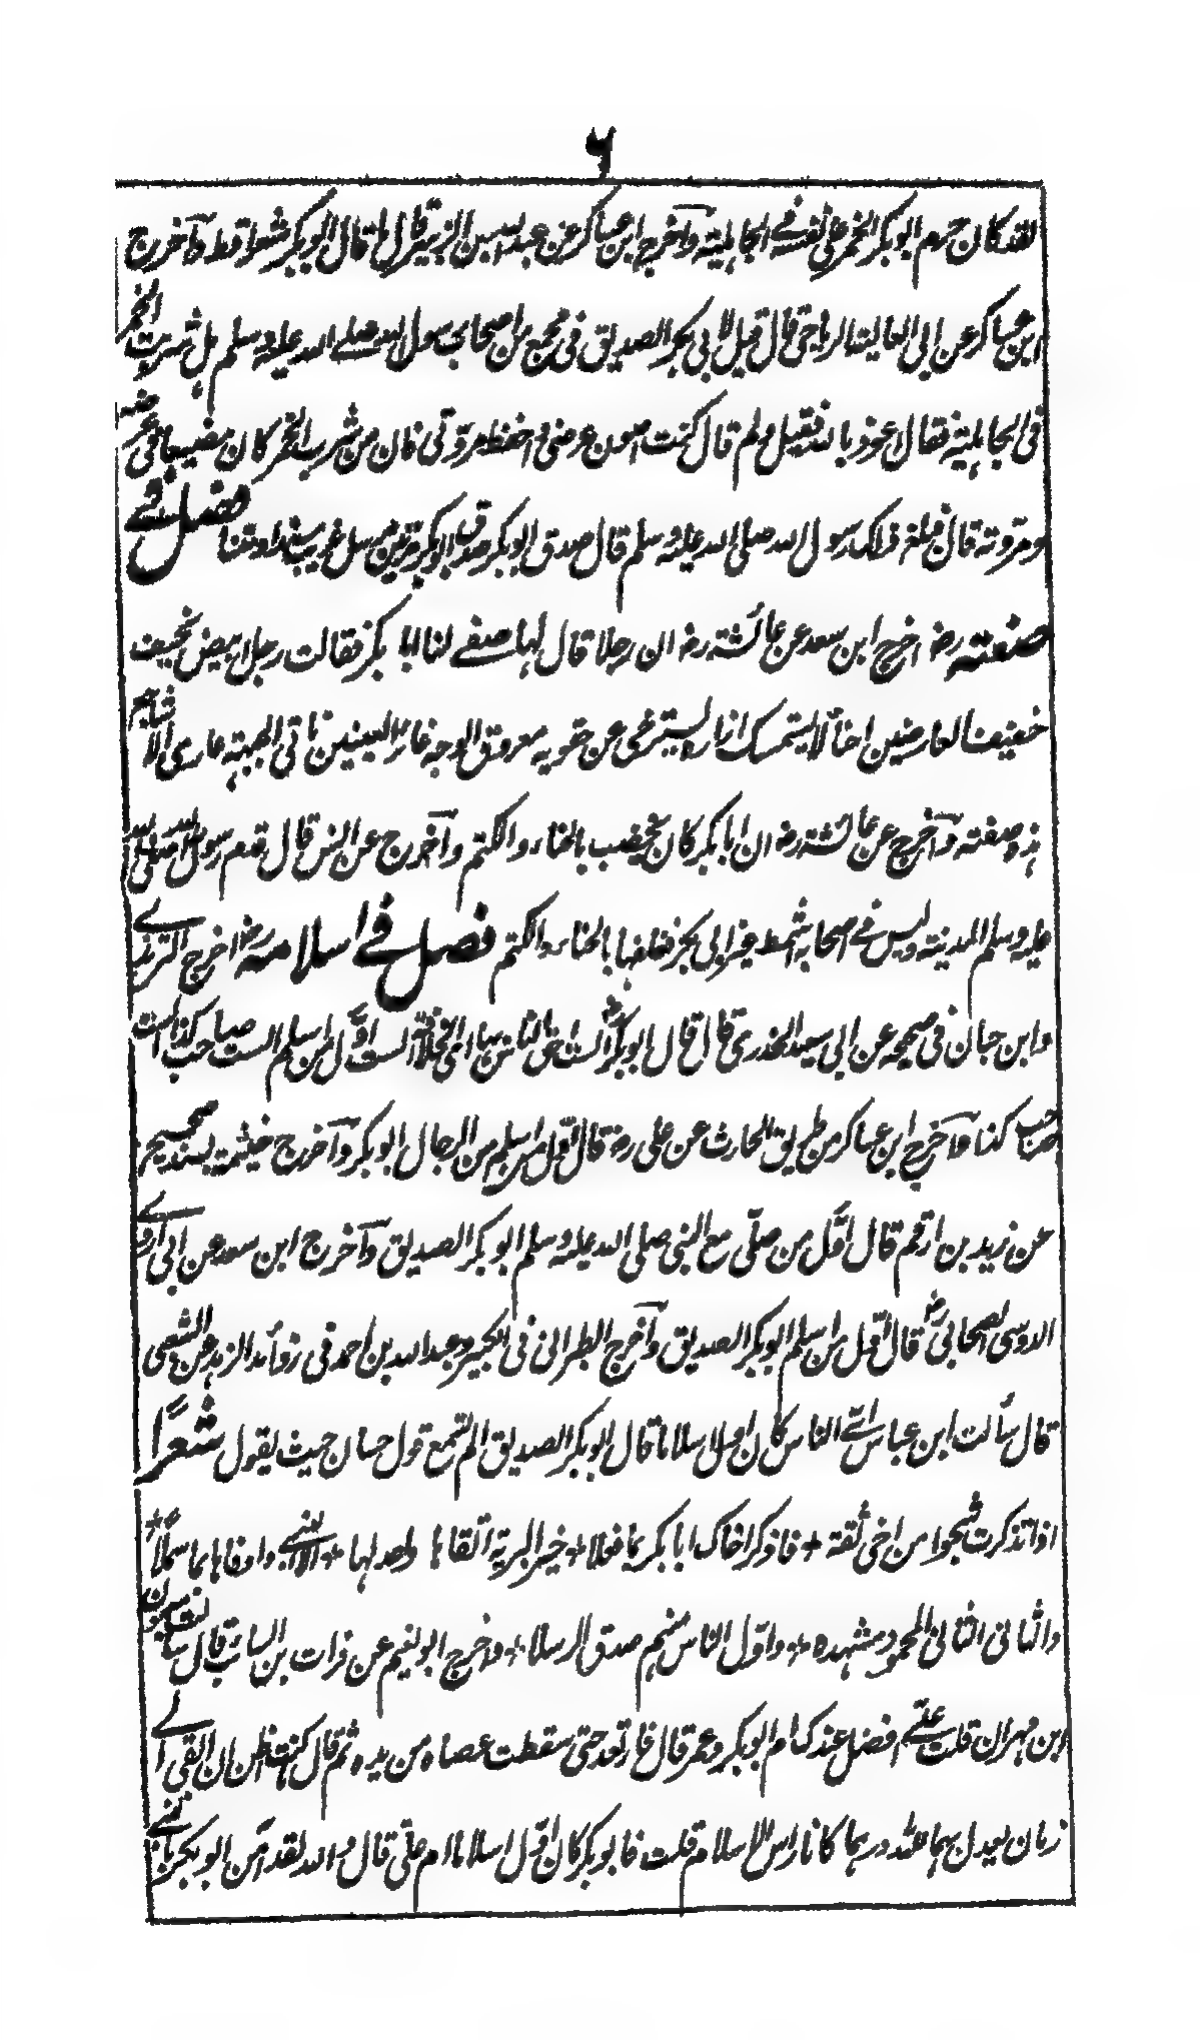 ٦
لقد كان حرم ابوبكر الخمر على نفسه فے الجاهلية وآخرج ابن عساكر عن عبد الله بن الزبير قال ما قال ابوبكر شعرا قط وآخرج
ابن عساكر عن ابى العالية الرياحى قال قيل لابى بكر الصديق فى مجمع من اصحاب رسول الله صلے الله عليه وسلم هل شربت الخمر
فى الجاهلية فقال اعوذ بالله فقيل ولم قال كنت اصون عرضى واحفظ مروتى فان من شرب الخمر كان مضيعا فى عرضه
ومروته قال فبلغ ذلك رسول الله صلى الله عليه وسلم قال صدق ابوبكر صدق ابوبكر مرتين مرسل غريب سندا ومتنا فصل فے
صفته رض اخرج ابن سعد عن عائشة رض ان رجلا قال لها صفے لنا ابا بكر فقالت رجل ابيض نحيف
خفيف العارضين اجنأ لا يستمسك ازاره يسترخى عن حقويه معروق الوجه غائر العينين ناتى الجبهة عارى الاشاجع
هذه صفته وآخرج عن عائشة رض ان ابا بكر كان يخضب بالحناء والكتم وآخرج عن انس قال قدم رسول الله صلى الله
عليه وسلم المدينة وليس فے اصحابه اشمط غير ابى بكر فغلفها بالحناء والكتم فصل فے اسلامه رض اخرج الترمذے
وابن حبان فى صحيحه عن ابى سعيد الخدرى قال قال ابوبكر رض الست احق الناس بها اى الخلافة الست اول من اسلم الست صاحب كذا الست
صاحب كذا وآخرج ابن عساكر من طريق الحارث عن على رض قال اول من اسلم من الرجال ابوبكر وآخرج خيثمة بسند صحيح
عن زيد بن ارقم قال اول من صلى مع النبى صلى الله عليه وسلم ابوبكر الصديق وآخرج ابن سعد عن ابى اروے
الدوسى الصحابى رض قال اول من اسلم ابوبكر الصديق وآخرج الطبرانى فى الكبير وعبد الله بن احمد فى زوائد الزهد عن الشعبى
قال سألت ابن عباس اےّ الناس كان اول اسلاما قال ابوبكر الصديق الم تسمع قول حسان حيث يقول شعرًا
اذا تذكرت شجوا من اخى ثقة + فاذكر اخاك ابا بكر بما فعلا + خير البرية اتقاها واعدلها + الا النبے واوفاها بما حملاً +
والثانى التالى المحمود مشهده + واول الناس منهم صدق الرسلا + وآخرج ابو نعيم عن فرات بن السائب قال سألت ميمون
ابن مهران قلت علےّ افضل عندك ام ابوبكر وعمر قال فارتعد حتى سقطت عصاه من يده ثم قال كنت اظن ان ابقى الے
زمان يعدل بهما لله درهما كانا راس الاسلام قلت فابوبكر كان اول اسلاما ام على قال والله لقد آمن ابوبكر بالنبے